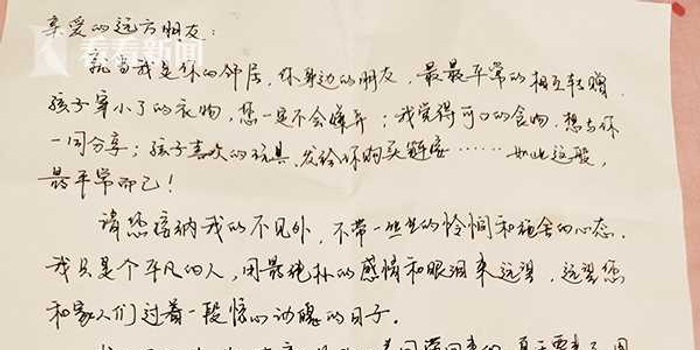 亲爱的远方朋友：
看看新闻
就当我是你的邻居，你身边的朋友，最最平常的相互转赠，
孩子穿小了的衣物，您一定不会嫌弃；我觉得可口的食物，想与你
一同分享；孩子喜欢的玩具，发给你购买链接……如此这般，
最平常而已！
请您接纳我的不见外，不带一丝丝的怜悯和施舍的心态，
我只是个平凡的人，用最纯朴的感情和眼泪来远望，远望您
和家人们过着一段惊心动魄的日子。